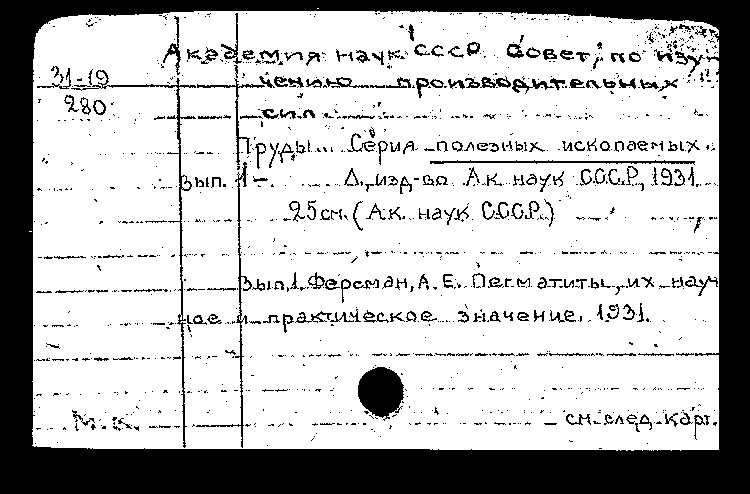 Академия наук СССР. Совет, по изу-
31-19 чению производительных
280 сил.
Труды... Серия полезных ископаемых.
вып. 1- Л., изд-во Ак. наук С.С.С.Р., 1931.
25 см. (Ак. наук С.С.С.Р.)
Вып.1. Ферсман, А. Е. Пегматиты, их науч-
ное и практическое значение. 1931.
М.К. см. след. карт.